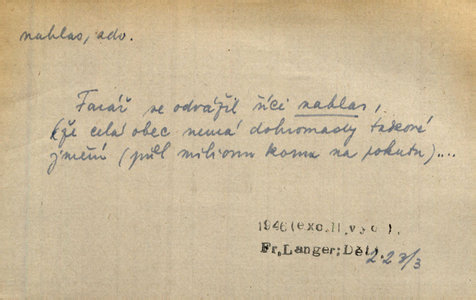 nahlas, adv.
Farář se odvážil říci nahlas,
(že celá obec nemá dohromady takové
jmění (půl milionu korun na pokutu)...
1946 (exc. II. vyd.).
Fr. Langer: Děti. 2. 23/3